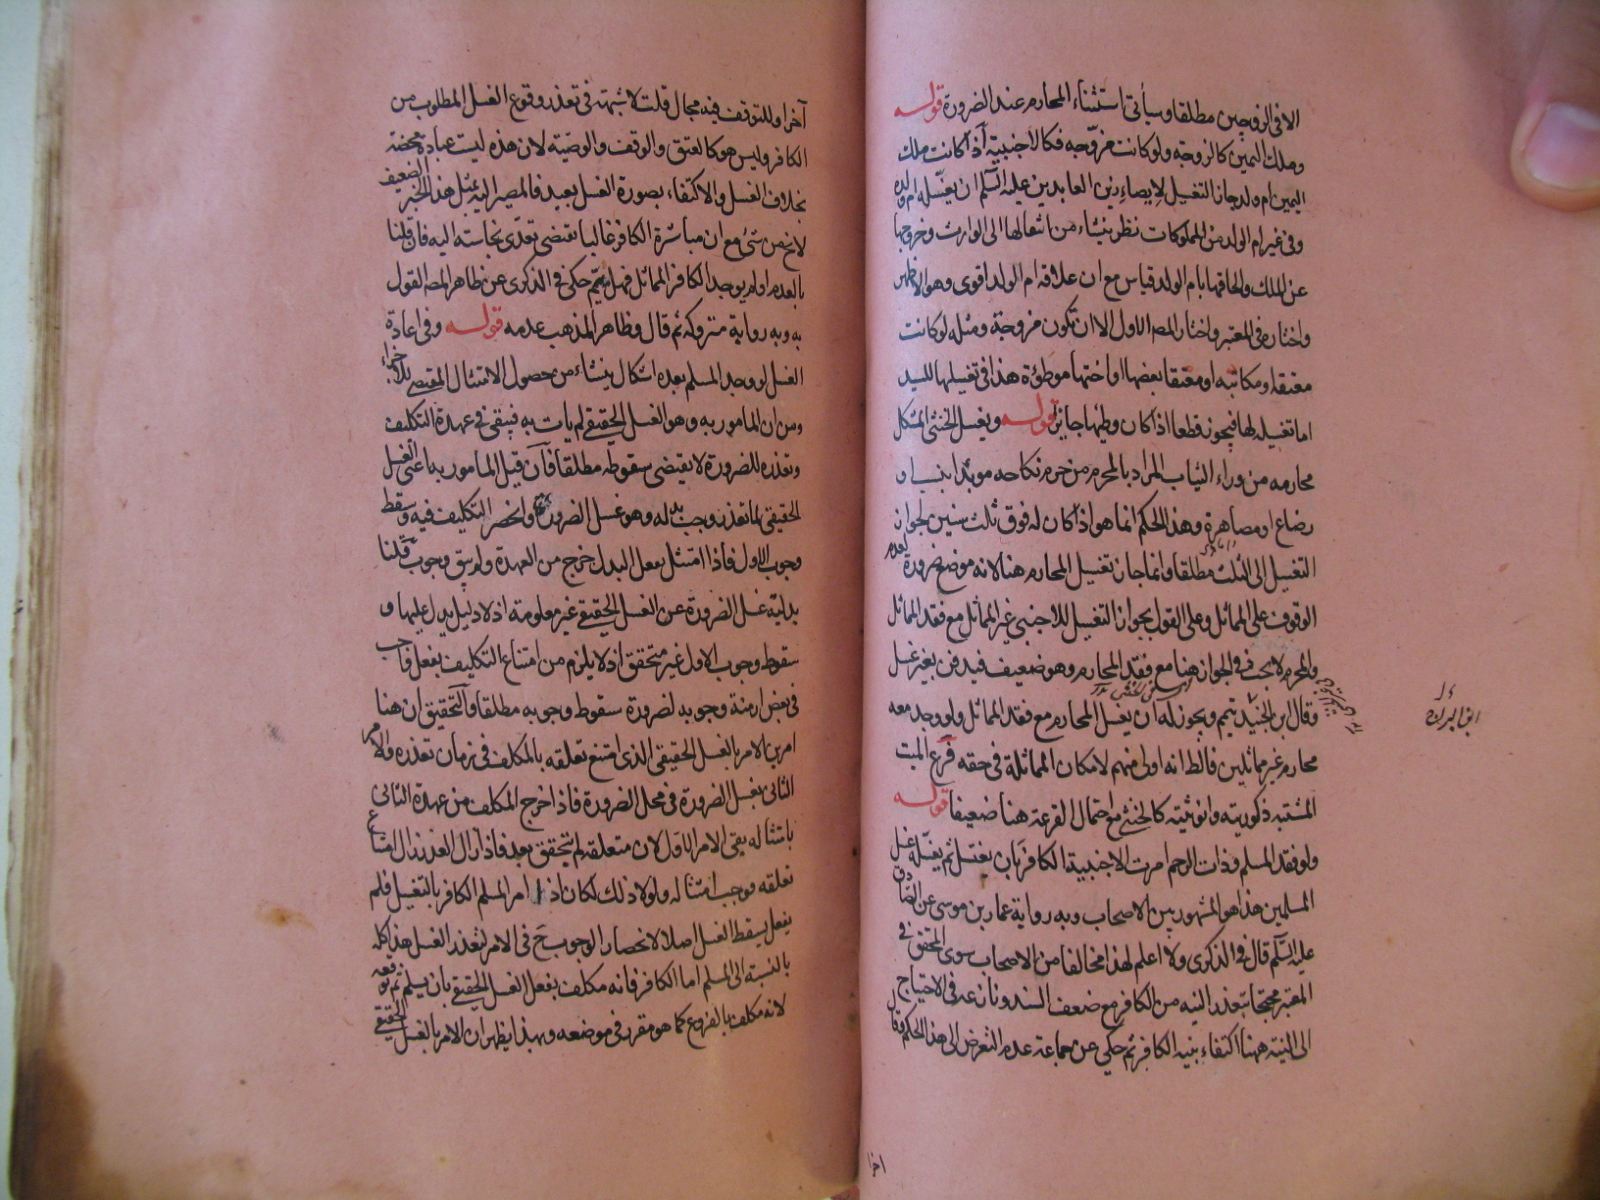 الا في الزوجين مطلقا وسيأتي استثناء المحارم عند الضرورة قوله
وملك اليمين كالزوجة ولو كانت مزوجة فكالاجنبية اذا كانت ملك
اليمين ام ولد جاز التغسيل لايصاء زين العابدين عليه السلم ان يغسله ام ولده
وفي غير ام الولد من المملوكات نظر ينشاء من انتقالها الى الوارث وخروجها
عن الملك والحاقها بام الولد قياس مع ان علاقة ام الولد اقوى وهو الاظهر
واختاره في المعتبر واختار المصـ الاول الا ان تكون مزوجة ومثله لو كانت
معتقة او مكاتبة او معتقا بعضها او اختها موطؤة هذا في تغسيلها للسيد
اما تغسيله لها فيجوز قطعا اذا كان وطيها جايز قوله ويغسل الخنثى المشكل
محارمه من وراء الثياب المراد بالمحرم من حرم نكاحه موبدا بنسب او
رضاع او مصاهرة وهذا الحكم انما هو اذا كان له فوق ثلث سنين لجواز
التغسيل الى الثلث مطلقا وانما جاز تغسيل المحارم هنا لانه موضع ضرورة لعدم
الوقوف على المماثل وعلى القول بجواز التغسيل للاجنبي غير المماثل مع فقد المماثل
والمحرم لا بحث في الجواز هنا مع فقد المحارم وهو ضعيف فيدفن بغير غسل
وقال ابن الجنيد تيمم ويجوز له ان يغسل المحارم مع فقد المماثل ولو وجد معه
محارم غير مماثلين فالظ انه اولى منهم لامكان المماثلة في حقه فرع الميت
المشتبه ذكوريته وانوثيته كالخنثى مع احتمال القرعة هنا ضعيفا قوله
ولو فقد المسلم وذات الرحم امرت الاجنبية الكافر بان يغتسل ثم يغسله غسل
المسلمين هذا هو المشهور بين الاصحاب وبه رواية عمار بن موسى عن الصادق
عليه السلم قال في الذكرى ولا اعلم لهذا مخالفا من الاصحاب سوى المحقق في
المعتبر محتجا بتعذر النية من الكافر مع ضعف السند ونازعه في الاحتياج
الى النية هنا اكتفاء بنية الكافر ثم حكى عن جماعة عدم التعرض الى هذا الحكم وقال
ابن البراج
اخرا
آخرا وللتوقف فيه مجال قلت لا شبهة في تعذر وقوع الغسل المطلوب من
الكافر وليس هو كالعتق والوقف والوصية لان هذه ليست عبادة محضة
بخلاف الغسل والاكتفاء بصورة الغسل بعيد فالمصير اليه بمثل هذا الخبر الضعيف
لا يخ من شئ مع ان مباشرة الكافر غالبا تقتضي تعدي نجاسته اليه فان قلنا
بالعدم او لم يوجد الكافر المماثل فهل ييمم حكى في الذكرى عن ظاهر المصـ القول
به وبه رواية متروكة ثم قال وظاهر المذهب عدمه قوله وفي اعادة
الغسل لو وجد المسلم بعده اشكال ينشاء من حصول الامتثال المقتضي للاجزاء
ومن ان المامور به وهو الغسل الحقيقي لم يات به فيبقى في عهدة التكليف
وتعذره للضرورة لا يقتضي سقوطه مطلقا فان قيل المامور به اعني الغسل
الحقيقي لما تعذر وجب بدله وهو غسل الضرورة وانحصر التكليف فيه وسقط
وجوب الاول فاذا امتثل بفعل البدل خرج من العهدة ولم يبق وجوب قلنا
بدلية غسل الضرورة عن الغسل الحقيقي غير معلومة اذ لا دليل يدل عليها و
سقوط وجوب الاول غير متحقق اذ لا يلزم من امتناع التكليف بفعل واجب
في بعض ازمنة وجوبه لضرورة سقوط وجوبه مطلقا والتحقيق ان هنا
امرين الامر بالغسل الحقيقي الذي امتنع تعلقه بالمكلف في زمان تعذره والامر
الثاني بغسل الضرورة في محل الضرورة فاذا خرج المكلف من عهدة الثاني
بامتثاله بقى الامر الاول لان متعلقه لم يتحقق بعد فاذا زال العذر زال امتناع
تعلقه فوجب امتثاله ولولا ذلك لكان اذا امر المسلم الكافر بالتغسيل فلم
يفعل يسقط الغسل اصلا لانحصار الوجوب ح في الامر لتعذر الغسل هذا كله
بالنسبة الى المسلم اما الكافر فانه مكلف بفعل الغسل الحقيقي بان يسلم ثم يوقعه
لانه مكلف بالفروع كما هو مقرر في موضعه وبهذا يظهر ان الامر بالغسل الحقيقي